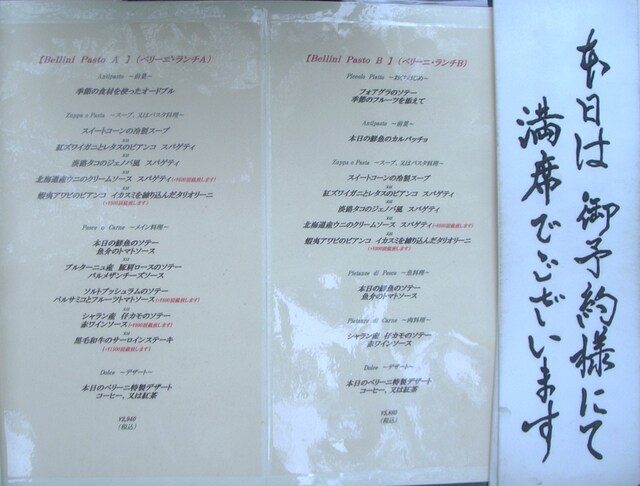 【Bellini Pasto A 】(ベリーニ・ランチA)
Antipasto ~前菜~
季節の食材を使ったオードブル
Zuppa o Pasta ~スープ、又はパスタ料理~
スイートコーンの冷製スープ
or
紅ズワイガニとレタスのビアンコ スパゲティ
or
淡路タコのジェノバ風 スパゲティ
or
北海道産ウニのクリームソース スパゲティ
or
蝦夷アワビのビアンコ イカスミを練り込んだタリオリーニ
Pesce o Carne ~メイン料理~
本日の鮮魚のソテー
魚介のトマトソース
or
ブルターニュ産 豚肩ロースのソテー
パルメザンチーズソース
or
ソルトブッシュラムのソテー
バルサミコとフルーツトマトソース
or
シャラン産 仔カモのソテー
赤ワインソース
or
黒毛和牛のサーロインステーキ
Dolce ~デザート~
本日のベリーニ特製デザート
コーヒー、又は紅茶
(税込)
【Bellini Pasto B 】(ベリーニ・ランチB)
Piccolo Piatto
フォアグラのソテー
季節のフルーツを添えて
Antipasto ~前菜~
本日の鮮魚のカルパッチョ
Zuppa o Pasta ~スープ、又はパスタ料理~
スイートコーンの冷製スープ
or
紅ズワイガニとレタスのビアンコ スパゲティ
or
淡路タコのジェノバ風 スパゲティ
or
北海道産ウニのクリームソース スパゲティ
or
蝦夷アワビのビアンコ イカスミを練り込んだタリオリーニ
Piatanza di Pesce ~魚料理~
本日の鮮魚のソテー
魚介のトマトソース
Piatanza di Carne ~肉料理~
シャラン産 仔カモのソテー
赤ワインソース
Dolce ~デザート~
本日のベリーニ特製デザート
コーヒー、又は紅茶
(税込)
本日は御予約様にて
満席でございます